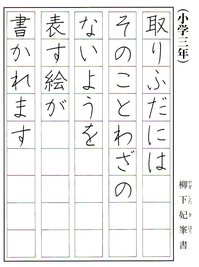 (小学三年)
柳下妃峯書
取りふだには
そのことわざの
ないようを
表す絵が
書かれます